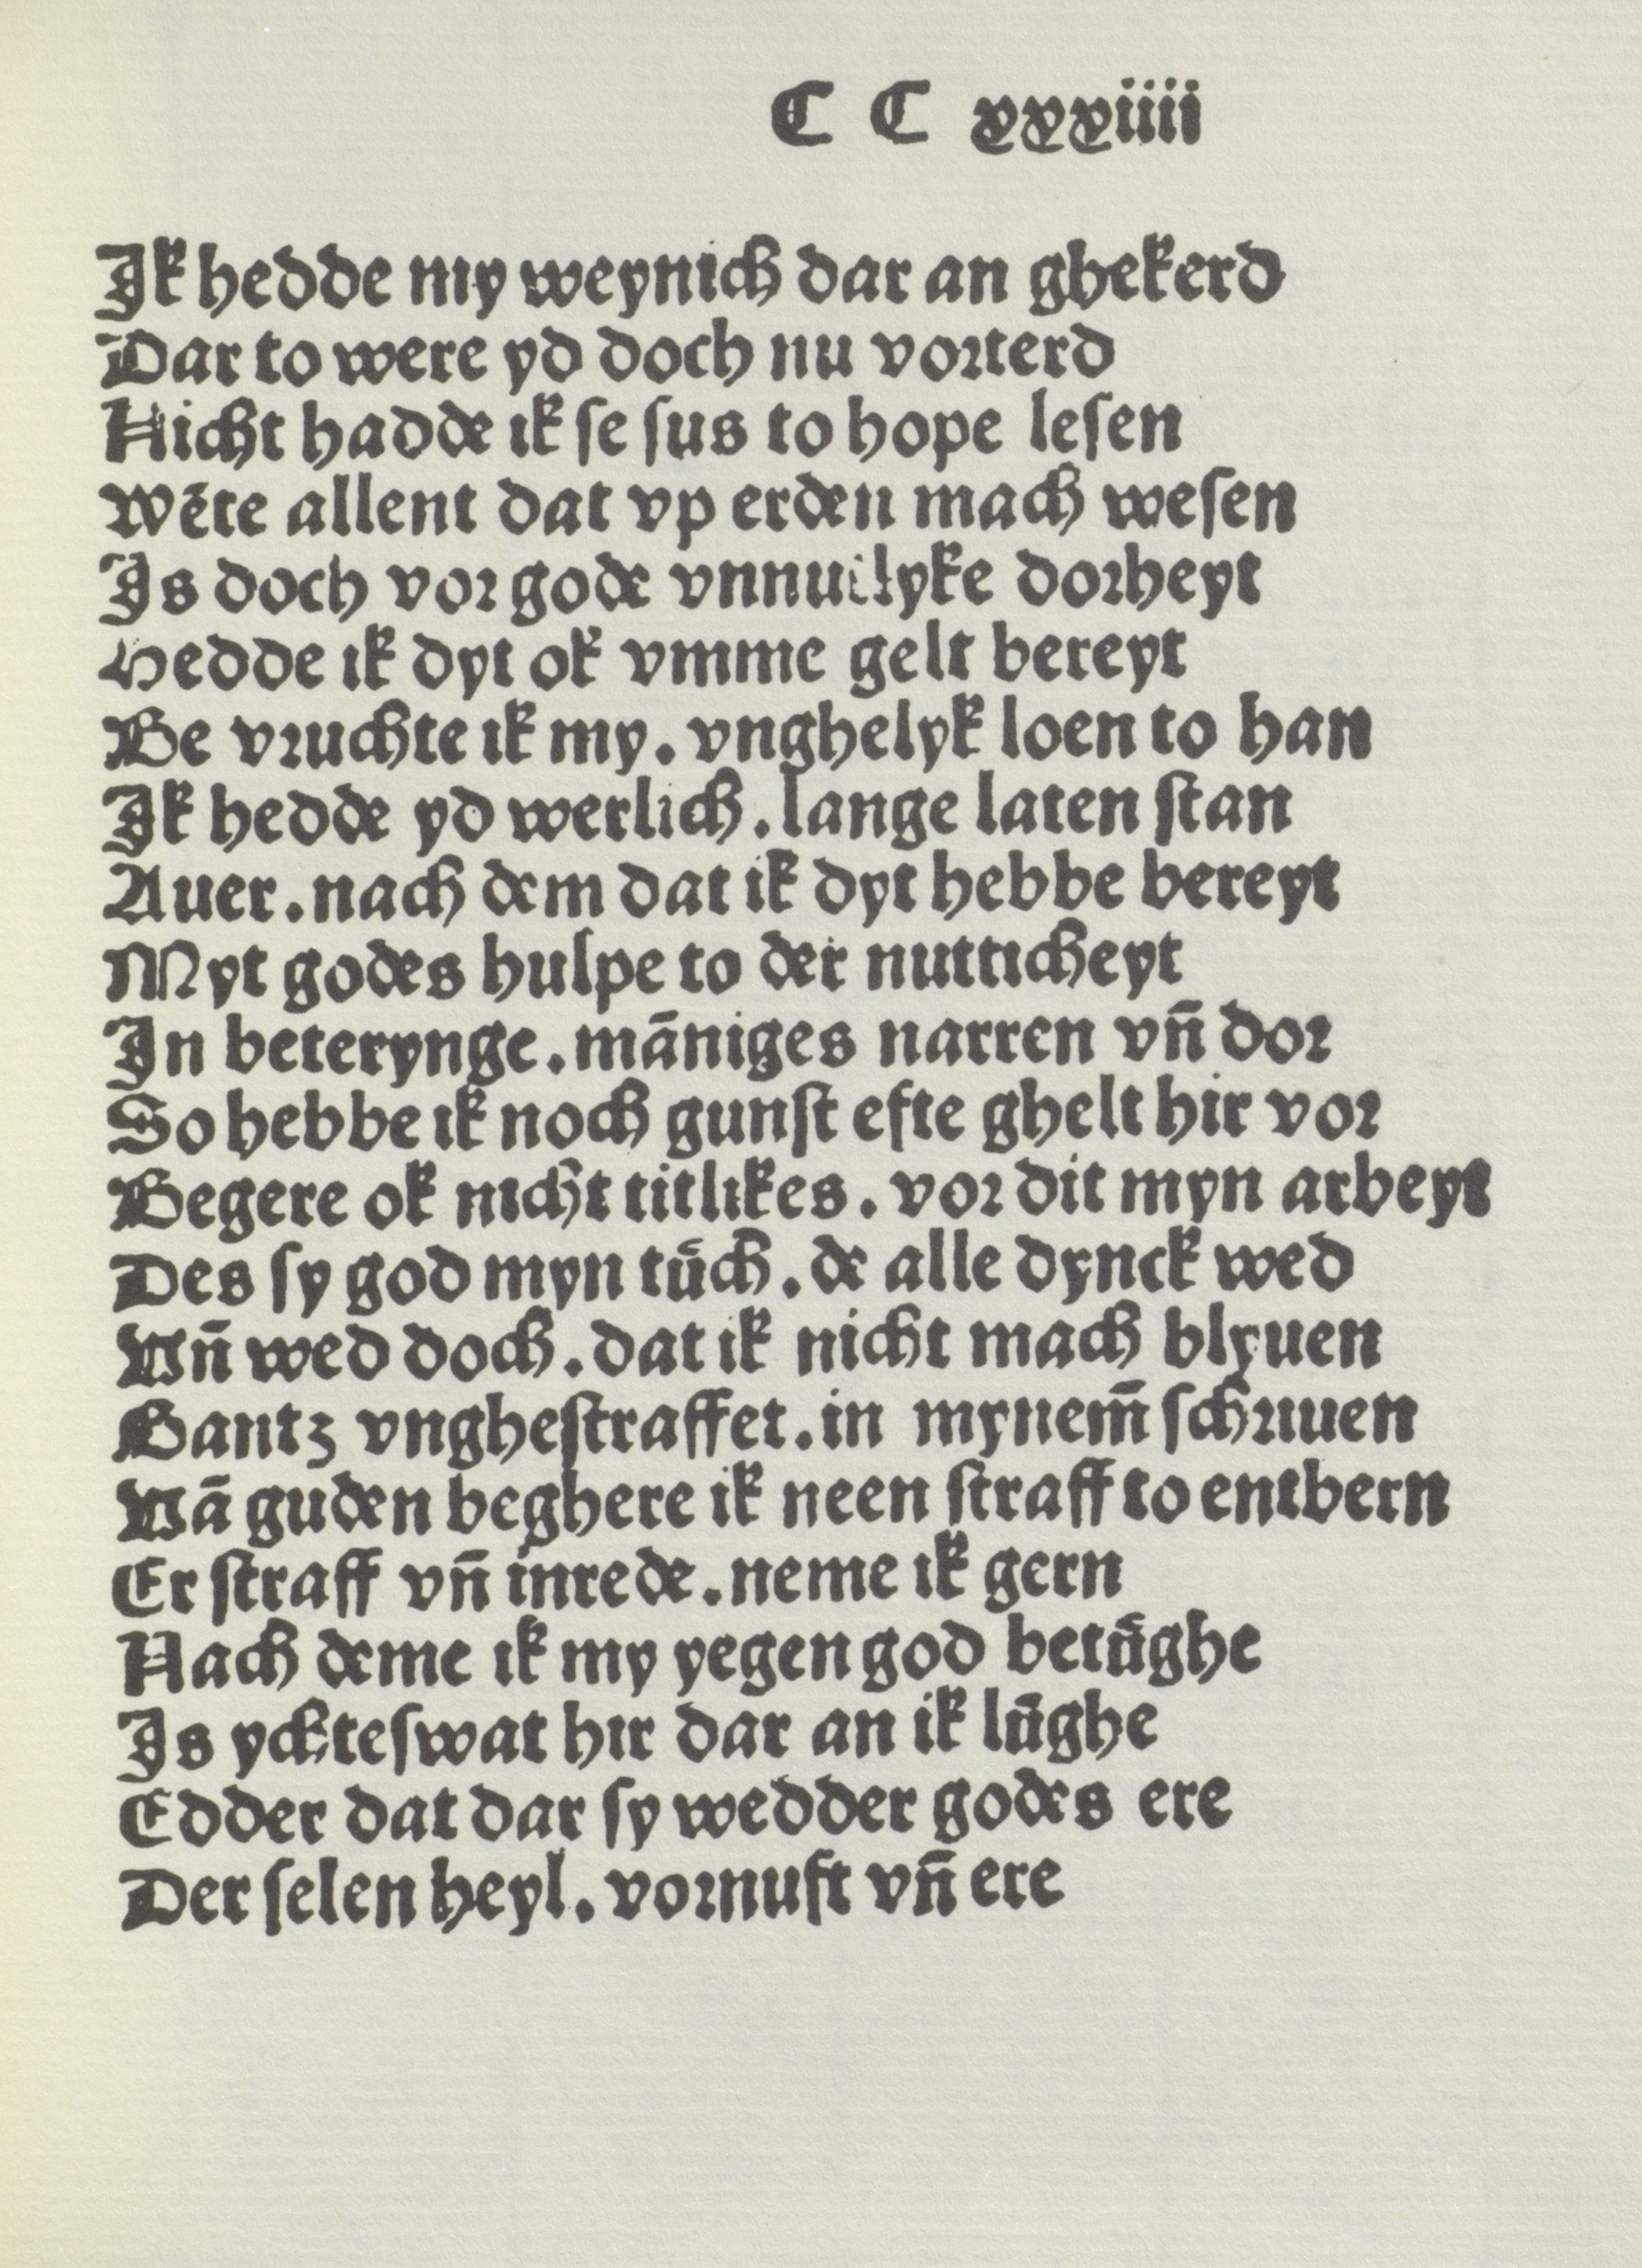 C C xxxiiii
Jk hedde my weynich dar an ghekerd
Dar to were yd doch nu vorterd
Nicht hadde ik ſe ſus to hope leſen
Wēte allent dat vp erden mach weſen
Js doch vor gode vnnutlyke dorheyt
Hedde ik dyt ok vmme gelt bereyt
Be vruchte ik my. vnghelyk loen to han
Jk hedde yd werlich. lange laten ſtan
Auer. nach dem dat ik dyt hebbe bereyt
Myt godes hulpe to der nutticheyt
Jn beterynge. māniges narren vn̄ dor
So hebbe ik noch gunſt efte ghelt hir vor
Begere ok nicht titlikes. vor dit myn arbeyt
Des ſy god myn tuͤch. de alle dynck wed
Vn̄ wed doch. dat ik nicht mach blyuen
Gantz vngheſtraffet. in mynem̄ ſchriuen
Vā guden beghere ik neen ſtraff to entbern
Er ſtraff vn̄ inrede. neme ik gern
Nach deme ik my yegen god betuͤghe
Js ychteſwat hir dar an ik luͤghe
Edder dat dar ſy wedder godes ere
Der ſelen heyl. vornuft vn̄ ere